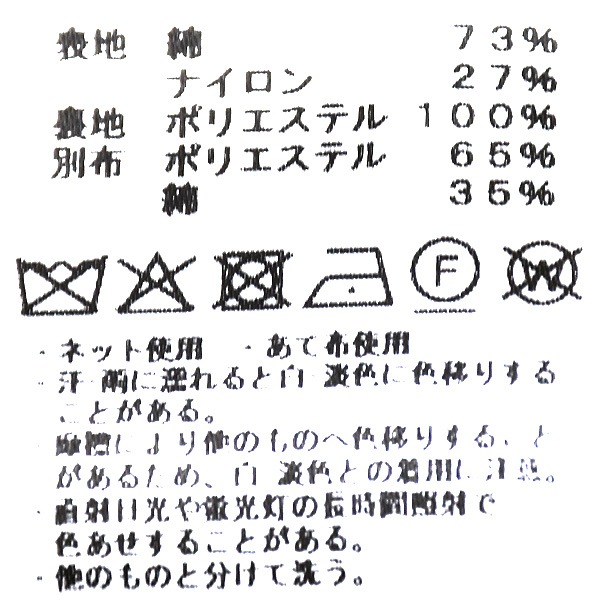 表地 綿 73%
ナイロン 27%
裏地 ポリエステル 100%
別布 ポリエステル 65%
綿 35%
F
W
・ネット使用 ・あて布使用
・汗 雨に濡れると白 淡色に色移りする
ことがある。
・摩擦により他のものへ色移りする、こと
があるため、白 淡色との着用に注意。
・直射日光や蛍光灯の長時間照射で
色あせすることがある。
・他のものと分けて洗う。